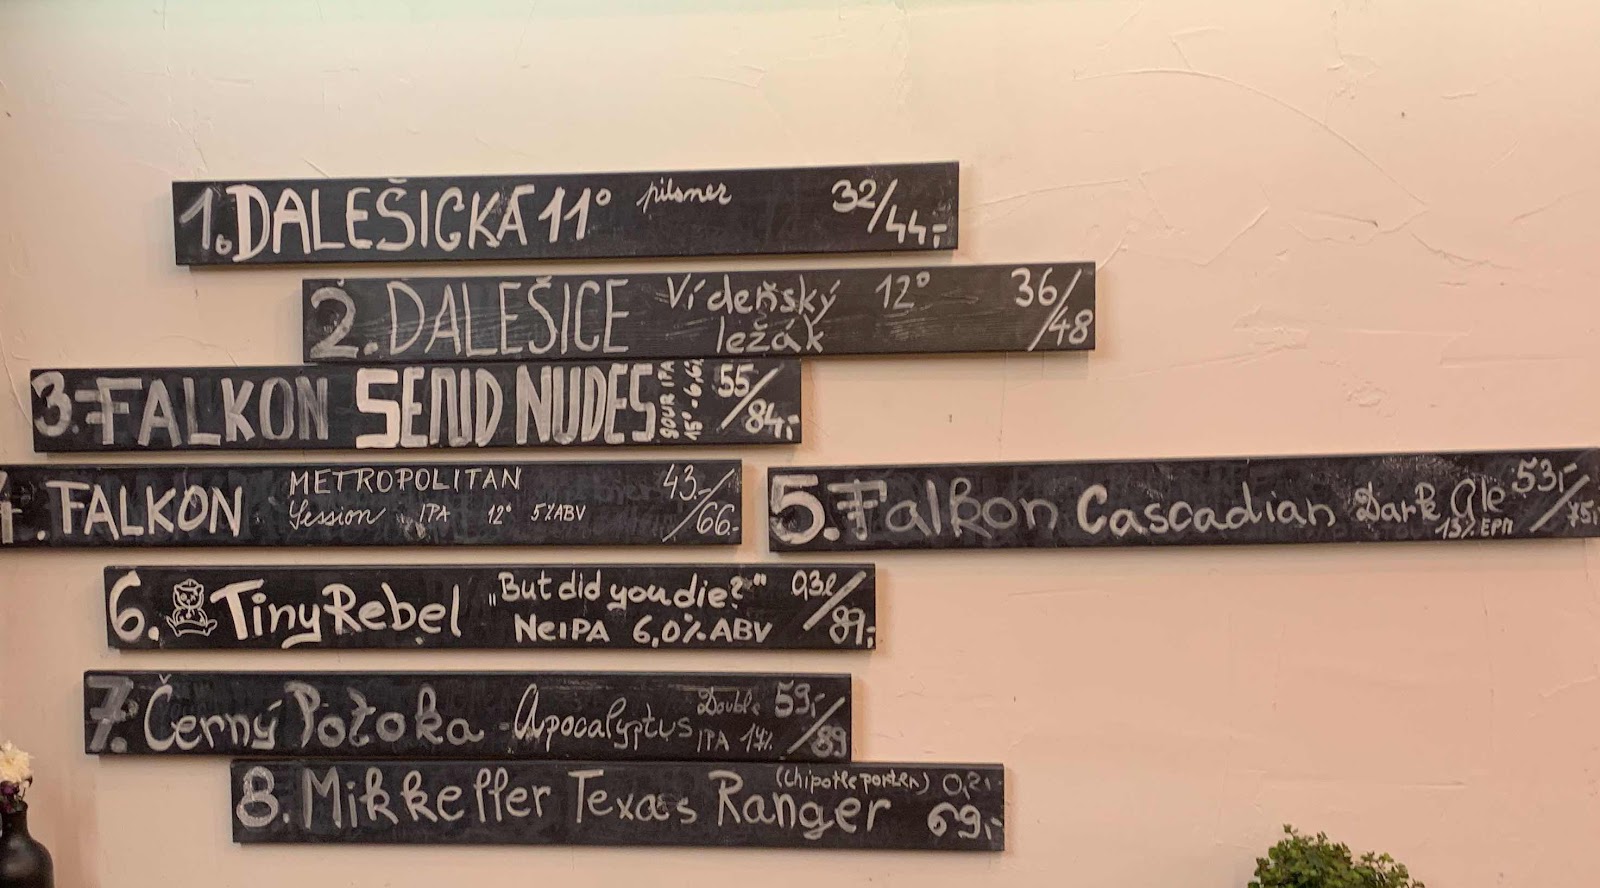 1. DALEŠICKÁ 11° pilsner 32/44,-
2. DALEŠICE Vídeňský ležák 12° 36/48
3. FALKON SEND NUDES SOUR IPA 15° - 6,6% 55/84,-
4. FALKON METROPOLITAN Session IPA 12° 5%ABV 43.-/66.-
5. Falkon Cascadian Dark Ale 13% EPM 53,-/75,-
6. TinyRebel „But did you die?“ NEIPA 6,0% ABV 0,3l/89,-
7. Černý Potoka - Apocalyptus Double IPA 17% 59,-/89
8. Mikkeller Texas Ranger (chipotle porter) 0,2l 69,-